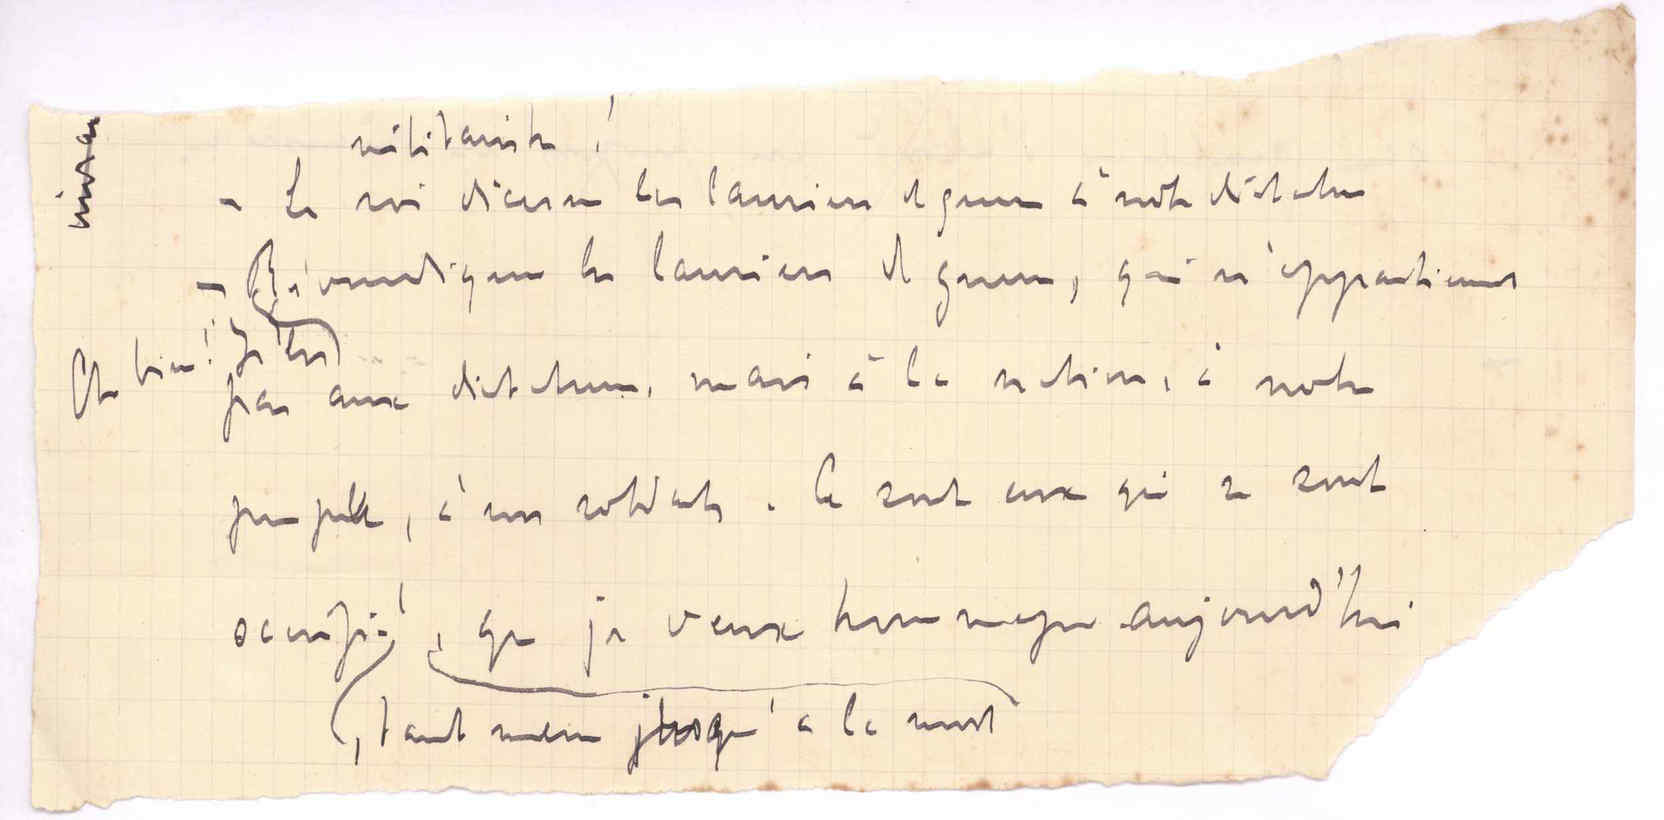 militariste !
- Le roi décerne les lauriers de guerre à notre dictateur
- Revendique les lauriers de guerre, qui n'appartiennent
Et bien ! Je les
pas aux dictateurs, mais à la nation, à notre
peuple, à nos soldats. Ce sont eux qui se sont
sacrifiés, que je veux hommager aujourd'hui
, tant même jusqu'à la mort